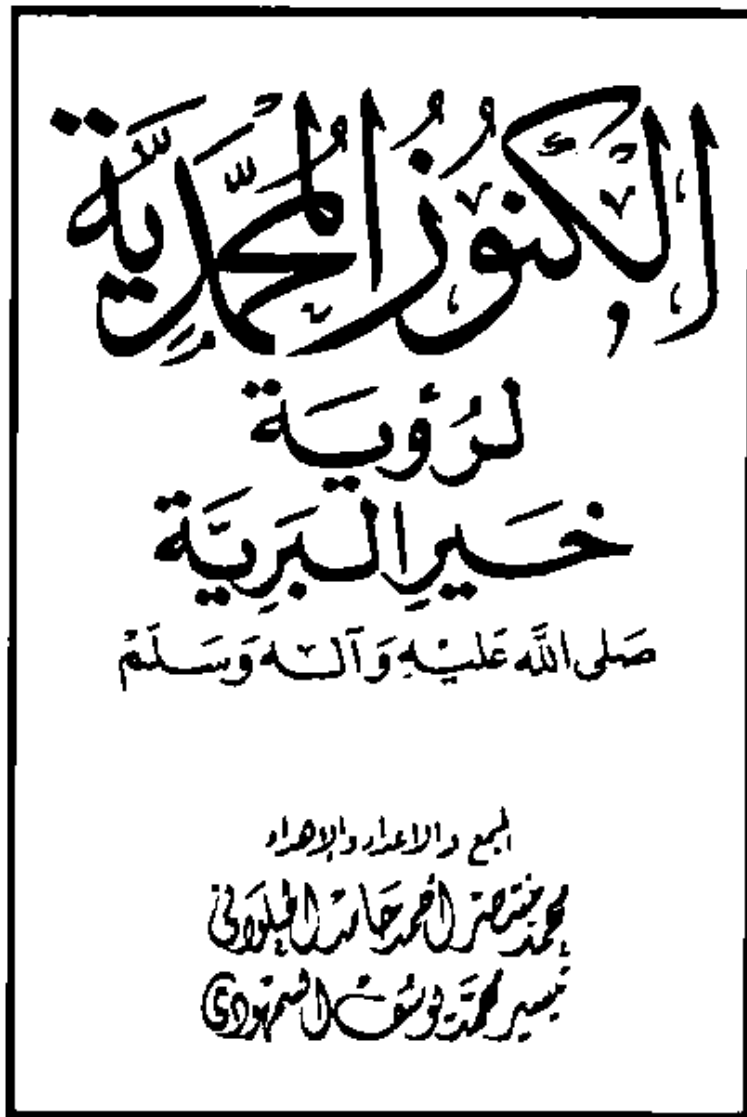 الْكُنُوزُ الْمُحَمَّدِيَّة
لرُؤية
خَيرِ البَرِيَّة
صَلى اللَّه عَليْهِ وَآلهِ وَسَلمْ
الجمع والاعداد والإهداء
محمد منتصر أحمد حامد الحلواني
تيسير محمد يوسف السمهودي